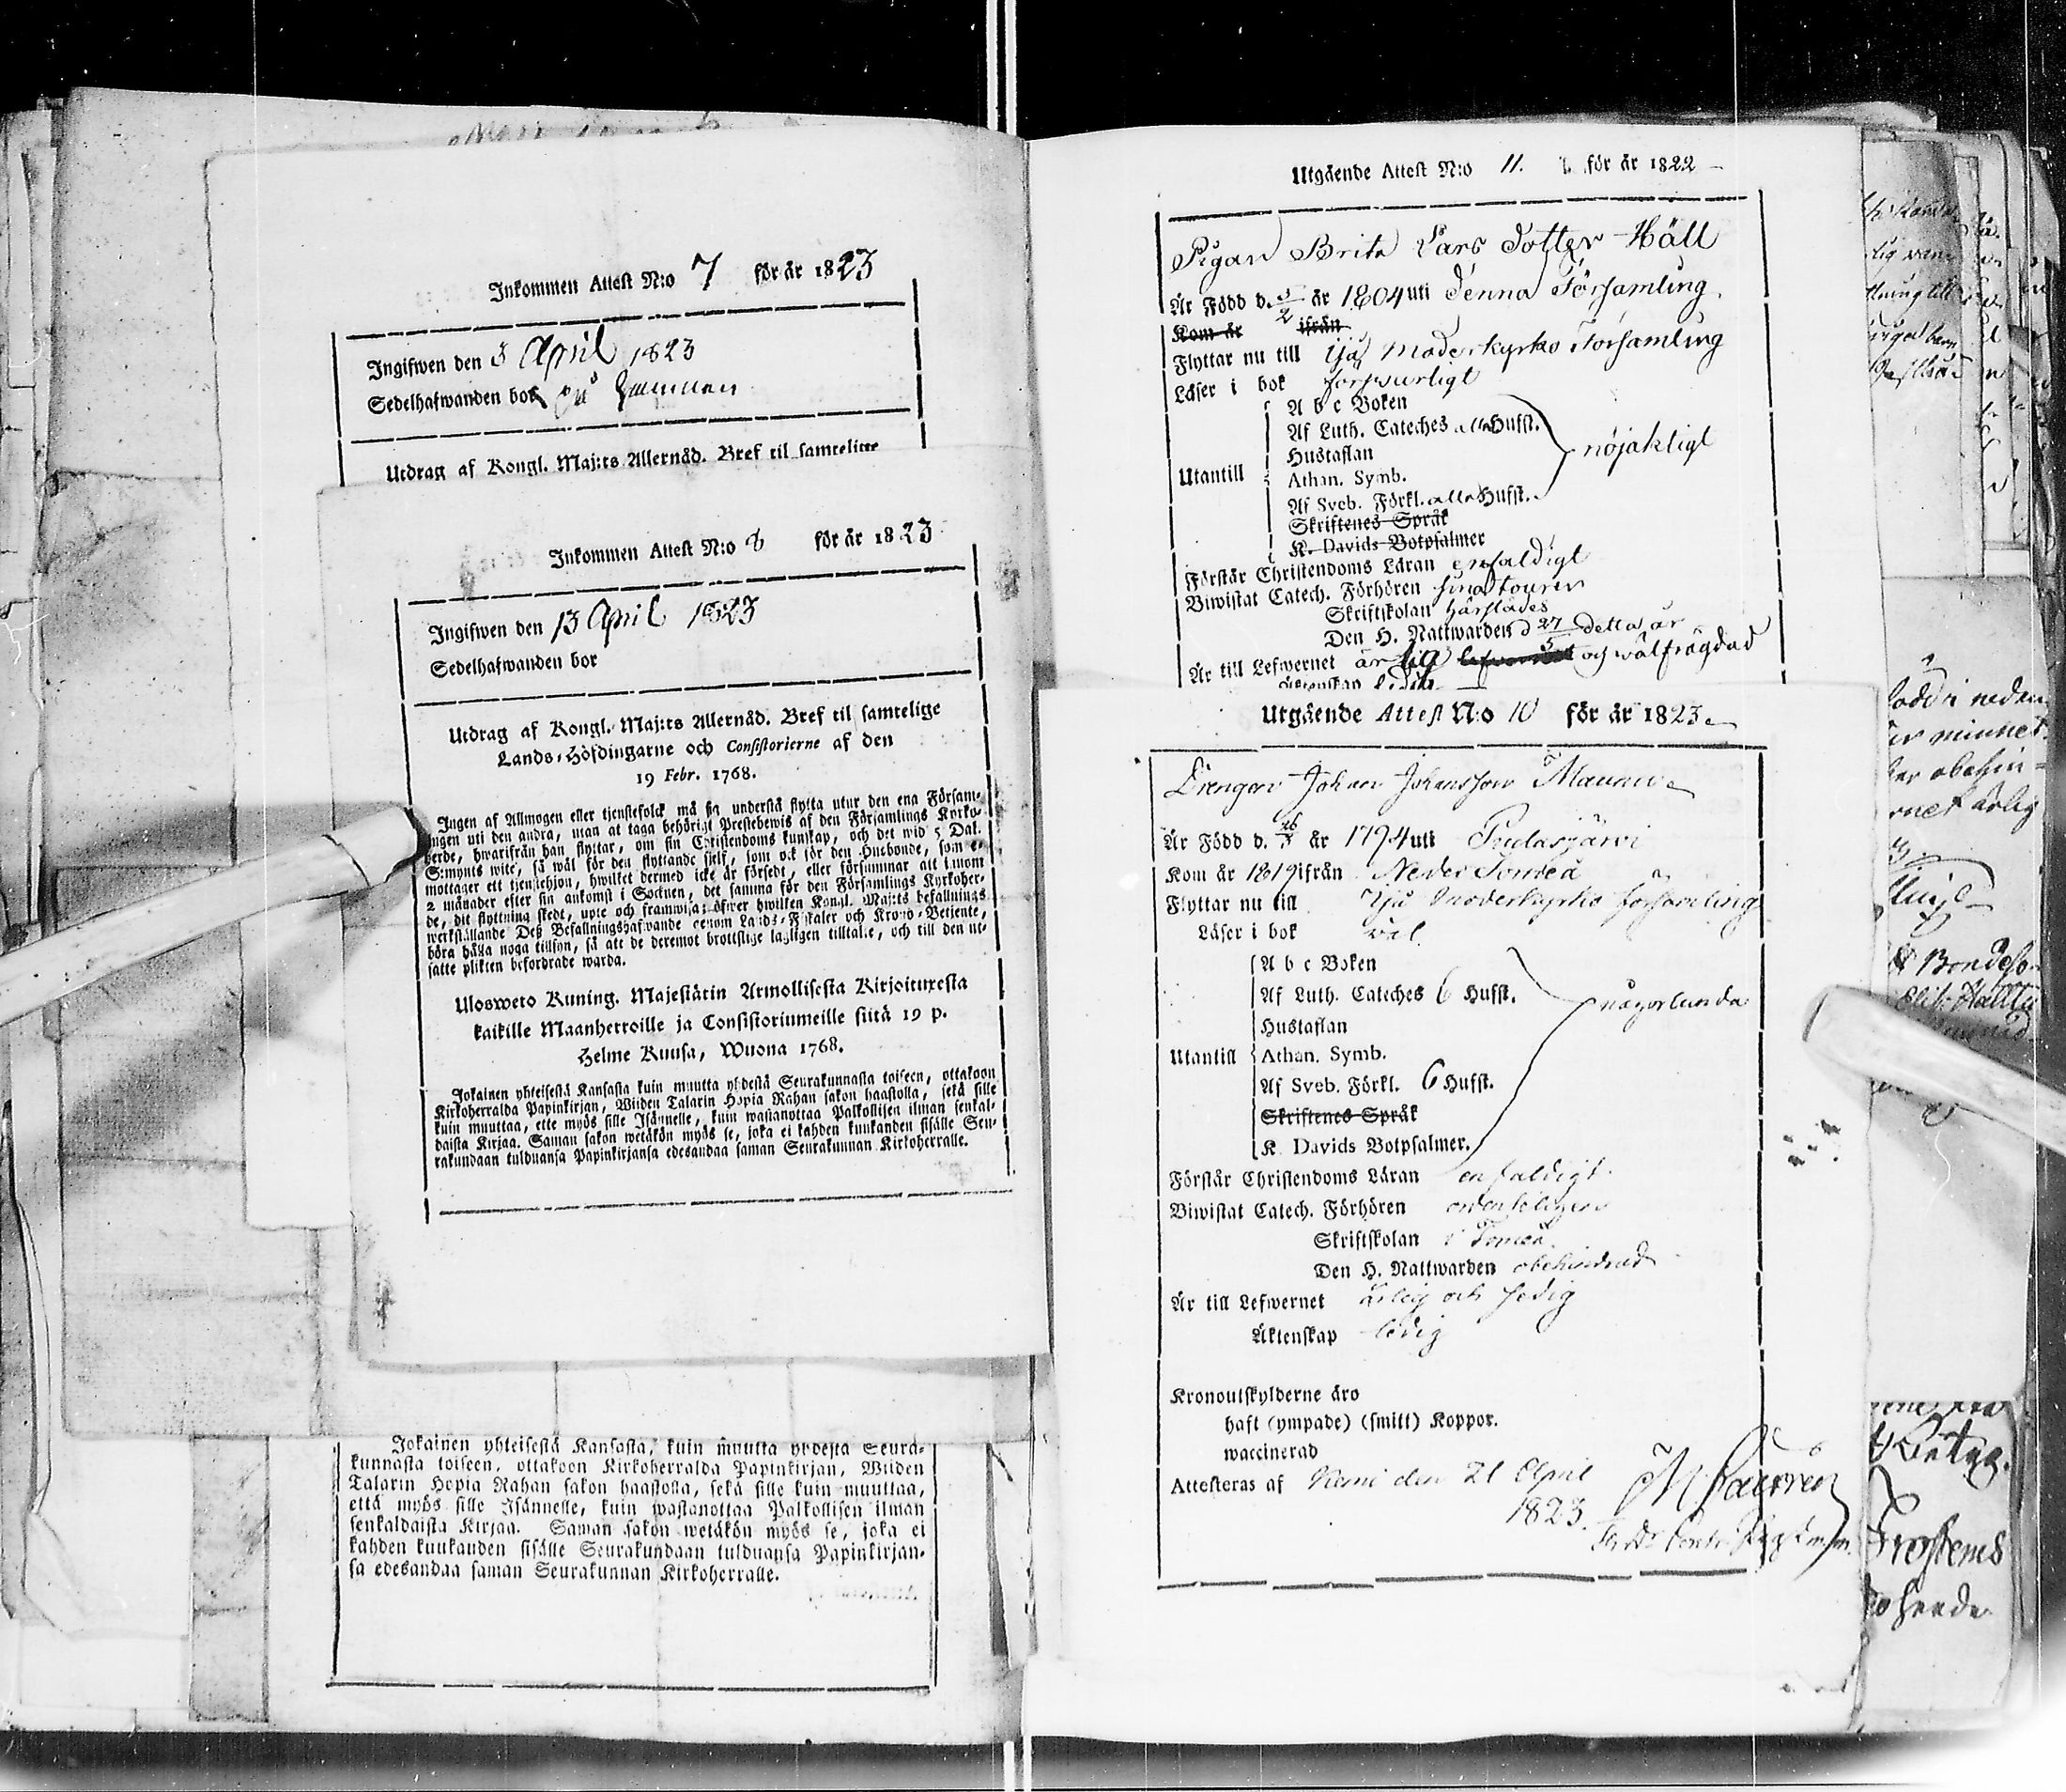 Inkommen Attest N:o 7 för år 1823
Ingifwen den 3 April 1823
Sedelhafwanden bor
Utdrag af Kongl. Maj:ts Allernåd. Bref til samtelige
Inkommen Attest N:o 8 för år 1823
Ingifwen den 13 April 1823
Sedelhafwanden bor
Utdrag af Kongl. Maj:ts Allernåd. Bref til samtelige
Lands-Höfdingarne och Consistorierne af den
19 Febr. 1768.
Ingen af Allmogen eller tjenstefolck må sig understå flytta utur den ena Försam-
ingen uti den andra, utan at taga behörigt Prestebewis af den Församlings Kyrko-
herde, hwarifrån han flyttar, om sin Christendoms kunskap, och det wid 5 Dal.
S:mynts wite, så wäl för den flyttande sjelf, som ock för den Husbonde, som e-
mottager ett tjenstehjon, hwilket dermed icke är försedt, eller försummar att innom
2 månader efter sin ankomst i Socknen, det samma för den Församlings Kyrkoher-
de, dit flyttning skedt, upte och framwisa; öfwer hwilken Kongl. Maj:ts befallnings
werkställande Deß Befallningshafwande genom Lands-Fiskaler och Krono-Betjente,
böra hålla noga tillsyn, så att de deremot brottslige lagligen tilltalte, och till den ut-
satte plikten befordrade warda.
Ulosweto Kuning. Majestätin Armollisesta Kirjoituxesta
kaikille Maanherroille ja Consistoriumeille siitä 19 p.
Helme Kuusa, Wuona 1768.
Jokainen yhteisestä Kansasta kuin muutta yhdestä Seurakunnasta toiseen, ottakoon
Kirkoherralda Papinkirjan, Wiiden Talarin Hopia Rahan sakon haastolla, sekä sille
kuin muuttaa, ette myös sille Isännelle, kuin wastanottaa Palkollisen ilman senkal-
daista Kirjaa. Saman sakon wetäkön myös se, joka ei kahden kuukanden sisälle Seu-
rakundaan tulduansa Papinkirjansa edesandaa saman Seurakunnan Kirkoherralle.
Jokainen yhteisestä Kansasta, kuin muutta yhdestä Seura-
kunnasta toiseen, ottakoon Kirkoherralda Papinkirjan, Wiiden
Talarin Hopia Rahan sakon haastolla, sekä sille kuin muuttaa,
että myös sille Isännelle, kuin wastanottaa Palkollisen ilman
senkaldaista Kirjaa. Saman sakon wetäkön myös se, joka ei
kahden kuukauden sisälle Seurakundaan tulduansa Papinkirjan-
sa edesandaa saman Seurakunnan Kirkoherralle.
Utgående Attest N:o 11. för år 1822
Pigan Brita Lars Dotter Häll
Är Född d. 3/2 år 1804 uti denna Församling.
Kom år ifrån
Flyttar nu till Ijå Moderkyrko Församling
Läser i bok försvarligt
A b c Boken
Af Luth. Cateches alla Hufst.
Hustaflan
nöjakligt
Utantill
Athan. Symb.
Af Sveb. Förkl. alla Hufst.
Skriftenes Språk
K. Davids Botpsalmer
Förstår Christendoms Läran enfaldigt
Biwistat Catech. Förhören sina tourer
Skriftskolan härstädes
Den H. Nattwarden d 27/5 detta år
Är till Lefwernet ärlig och wälfrägdad
Äktenskap ledig
Utgående Attest N:o 10 för år 1823
Drengen Johan Johansson Maunu
Är Född d. 26/3 år 1794 uti Pudasjärvi
Kom år 1819 ifrån Neder Torneå
Flyttar nu till Ijå Moderkyrko församling
Läser i bok wäl
A b c Boken
Af Luth. Cateches 6 Hufst.
någorlunda
Hustaflan
Utantill
Athan. Symb.
Af Sveb. Förkl. 6 Hufst.
Skriftenes Språk
K Davids Botpsalmer.
Förstår Christendoms Läran enfaldigt
Biwistat Catech. Förhören
Skriftskolan i Torneå
Den H. Nattwarden obehindrad
Är till Lefwernet ärlig och sedig
Äktenskap ledig
Kronoutskylderne äro
haft (ympade) (smitt) Koppor.
waccinerad
Attesteras af Kemi den 21 April
1823.